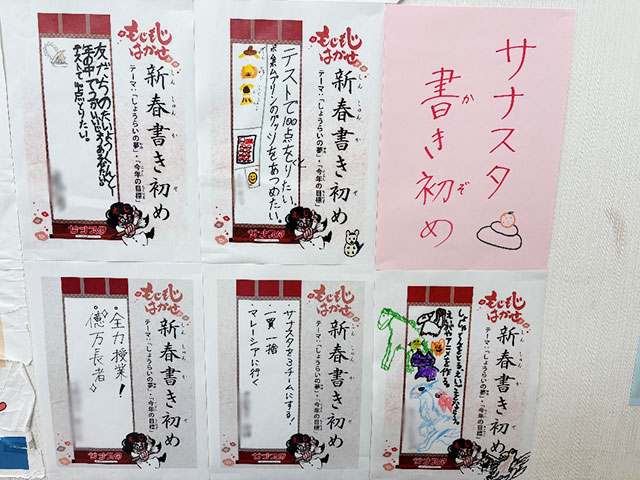 サナスタ
書き初め
かぞ
もじもじ
はかせ
新春書き初め
しんしゅんかぞ
テーマ:「しょうらいの夢」・「今年の目標」
テストで100点をとりたい。
ポムポムプリンのグッツをあつめたい。
サナスタ
もじもじ
はかせ
新春書き初め
しんしゅんかぞ
テーマ:「しょうらいの夢」・「今年の目標」
サナスタ
もじもじ
はかせ
新春書き初め
しんしゅんかぞ
テーマ:「しょうらいの夢」・「今年の目標」
もじもじ
はかせ
新春書き初め
しんしゅんかぞ
テーマ:「しょうらいの夢」・「今年の目標」
・サナスタを3チームにする!
・一買一捨
・マレーシアに行く
サナスタ
もじもじ
はかせ
新春書き初め
しんしゅんかぞ
テーマ:「しょうらいの夢」・「今年の目標」
・全力授業!
・億万長者
サナスタ